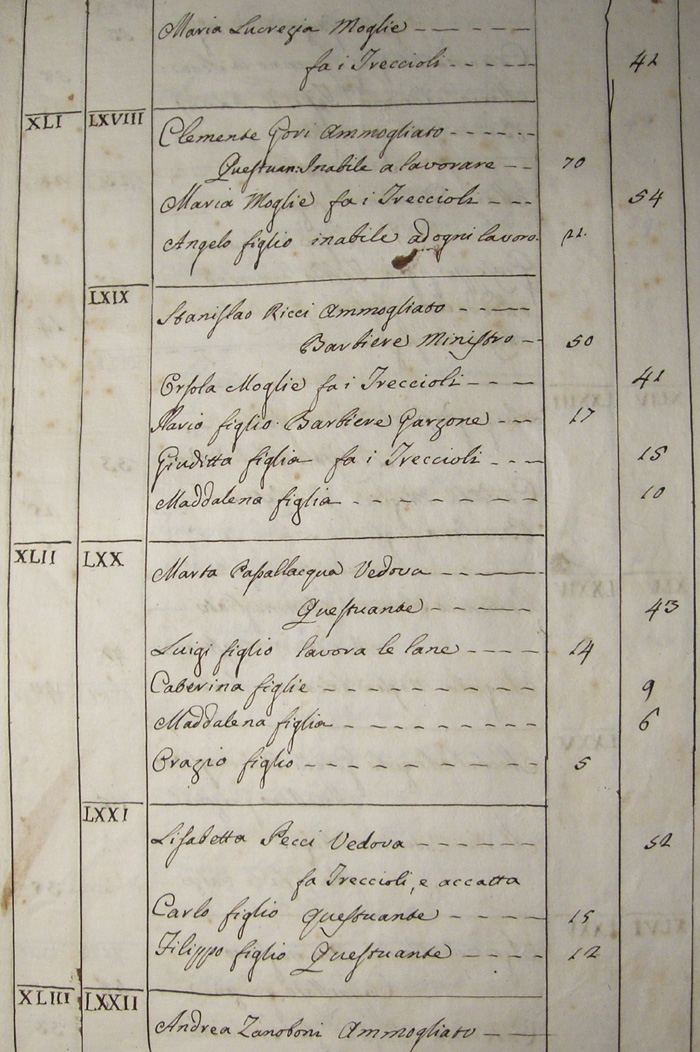 Maria Lucrezia Moglie
fa i Treccioli 42
XLI LXVIII
Clemente Gori Ammogliato
Questuan: Inabile a lavorare 70
Maria Moglie fa i Treccioli 54
Angelo figlio inabile ad ogni lavoro. 22.
LXIX
Stanislao Ricci Ammogliato
Barbiere Ministro 50
Orsola Moglie fa i Treccioli 41
Ilario figlio Barbiere Garzone 17
Giuditta figlia fa i Treccioli 15
Maddalena figlia 10
XLII LXX
Marta Passallacqua Vedova
Questuante 43
Luigi figlio lavora le lane 14
Caterina figlie 9
Maddalena figlia 6
Orazio figlio 5
LXXI
Lisabetta Pecci Vedova 52
fa Treccioli, e accatta
Carlo figlio questuante 15
Filippo figlio Questuante 12
XLIII LXXII
Andrea Zanoboni Ammogliato